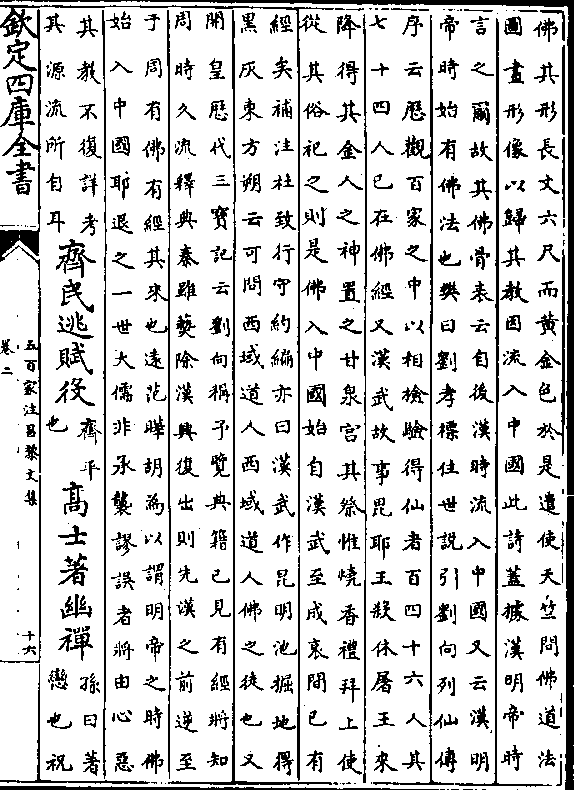 佛其形長丈六尺而黃金色於是遣使天竺問佛道法
圖畫形像以歸其教因流入中國此詩蓋據漢明帝時
言之爾故其佛骨表云自後漢時流入中國又云漢明
帝時始有佛法也樊曰劉孝標住世説引劉向列仙傳
序云歷觀百家之中以相檢驗得仙者百四十六人其
七十四人已在佛經又漢武故事毘耶王殺休屠王來
降得其金人之神置之甘泉宫其祭惟燒香禮拜上使
從其俗祀之則是佛入中國始自漢武至成哀間已有
經矣補注杜致行守約編亦曰漢武作昆明池掘地得
黑灰東方朔云可問西域道人西域道人佛之徒也又
開皇歷代三寶記云劉向稱予覽典籍已見有經將知
周時久流釋典秦雖爇除漢興復出則先漢之前逆至
于周有佛有經其來也遠范曄胡為以謂明帝之時佛
始入中國耶退之一世大儒非承襲謬誤者將由心惡
其教不復詳考
其源流所自耳
齊民逃賦役
齊平
也
高士著幽禪
孫曰著
戀也祝
欽定四庫全書
五百家注昌黎文集
卷二
十六